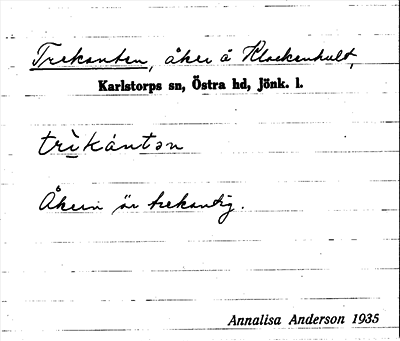 Trekanten, åker å Klockenhult,
Karlstorps sn, Östra hd, Jönk. l.
trìkántən
Åkern är trekantig.
Annalisa Anderson 1935